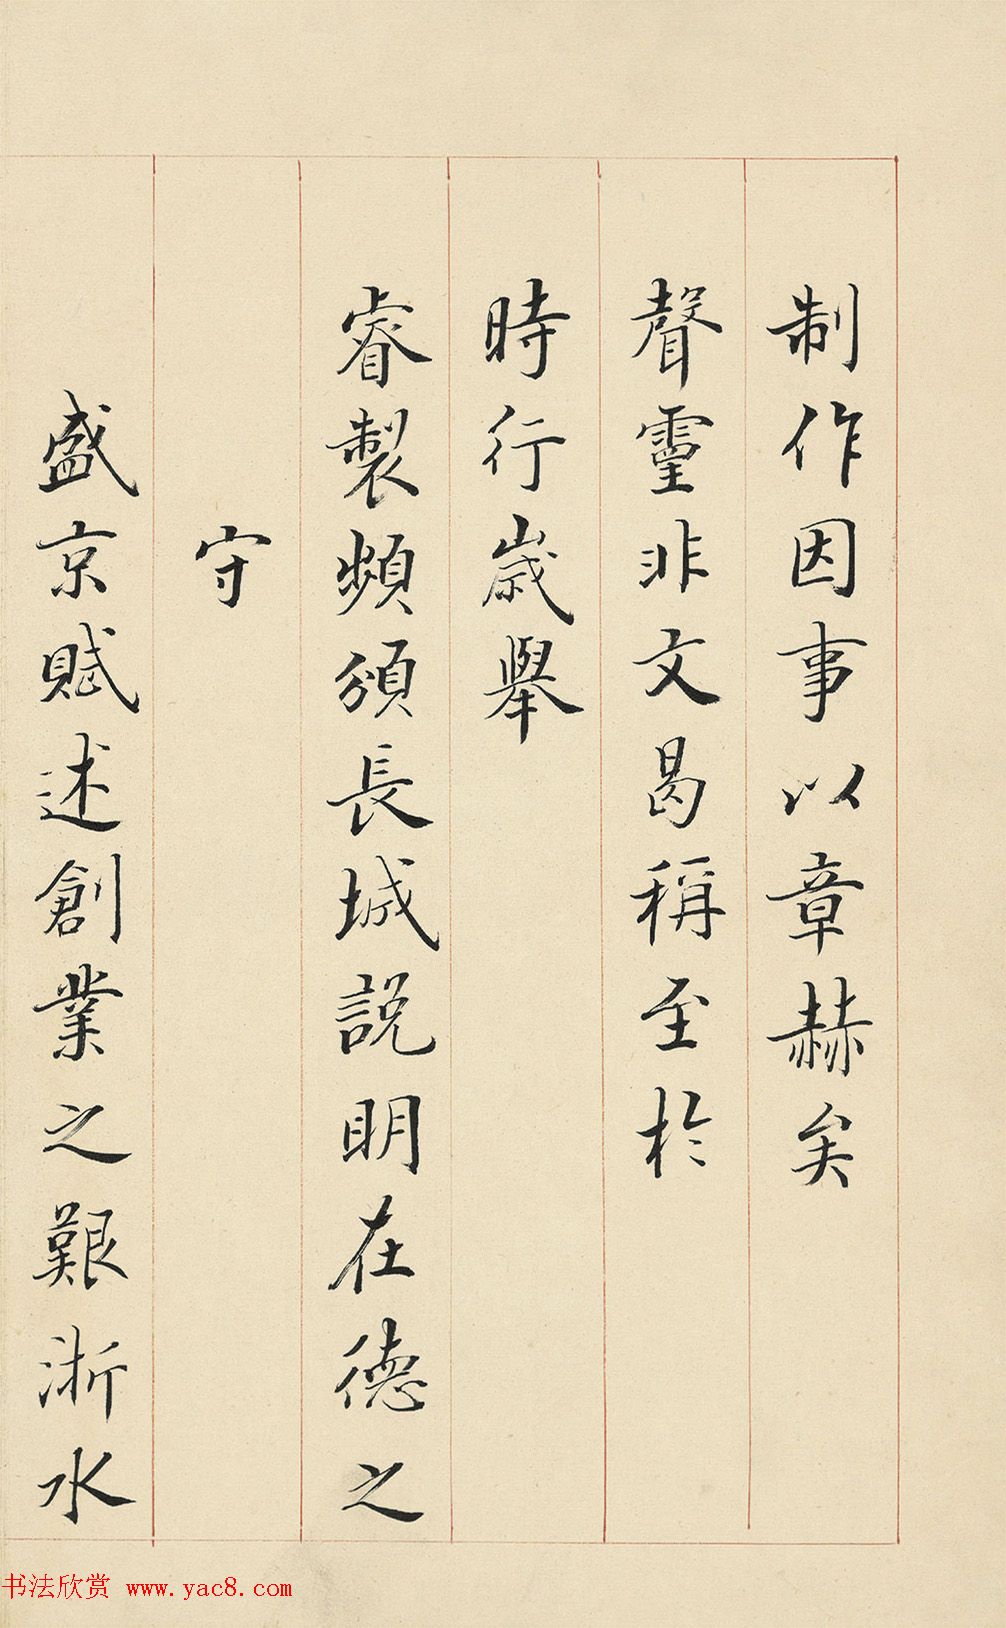 制作因事以章赫矣
聲靈非文曷稱至於
時行歲舉
睿製頻頒長城説明在德之
守
盛京賦述創業之艱淅水
书法欣赏 www.yac8.com